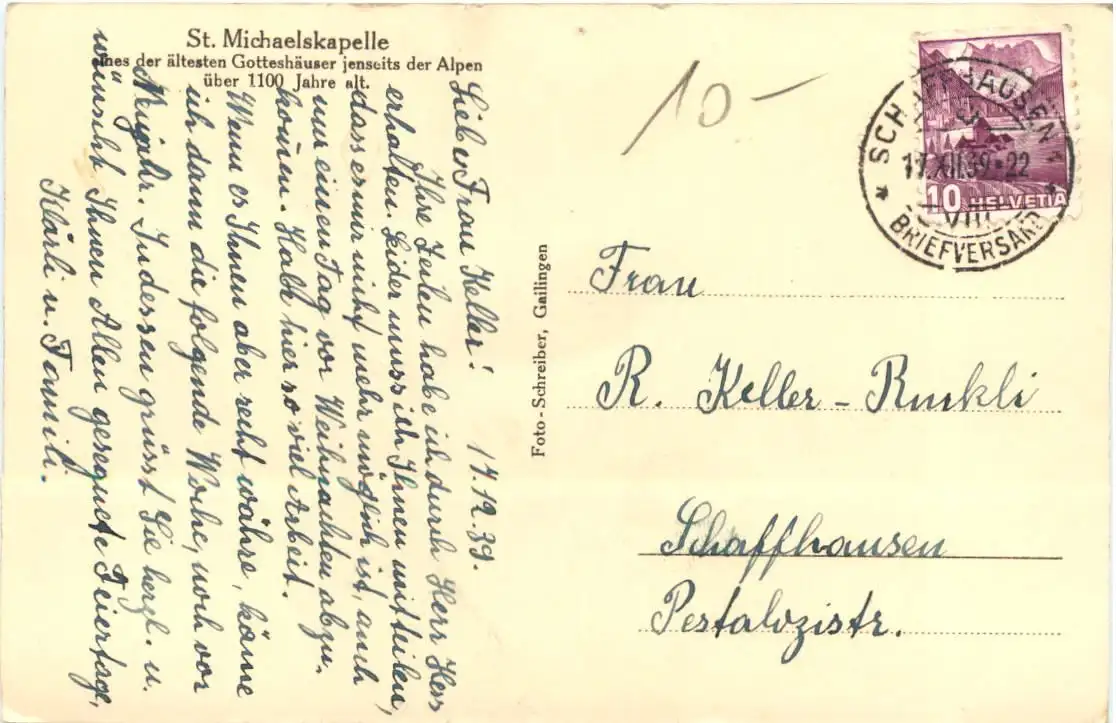 St. Michaelskapelle
eines der ältesten Gotteshäuser jenseits der Alpen
über 1100 Jahre alt.
10 —
SCHAFFHAUSEN 1
17.XII.39-22
VIII
BRIEFVERSAND
10 HELVETIA
Liebe Frau Keller! 17.12.39.
Ihre Zeilen habe ich durch Herr Hess
erhalten. Leider muss ich Ihnen mitteilen,
dass es mir nicht mehr möglich ist, auch
nur einen Tag vor Weihnachten abzu.
können. Habe hier so viel Arbeit.
Wenn es Ihnen aber recht währe, käme
ich dann die folgende Woche, noch vor
Neujahr. Indessen grüsst Sie herzl. u.
wünscht Ihnen Allen gesegnete Feiertage,
Klärli u. Famili.
Foto-Schreiber, Gailingen
Frau
R. Keller-Runkli
Schaffhausen
Pestalozistr.